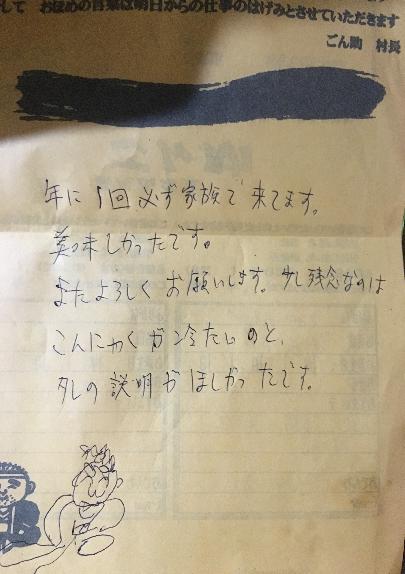 して おほめの言葉は明日からの仕事のはげみとさせていただきます
ごん助 村長
年に1回必ず家族で来てます。
美味しかったです。
またよろしくお願いします。少し残念なのは
こんにゃくが冷たいのと、
タレの説明がほしかったです。